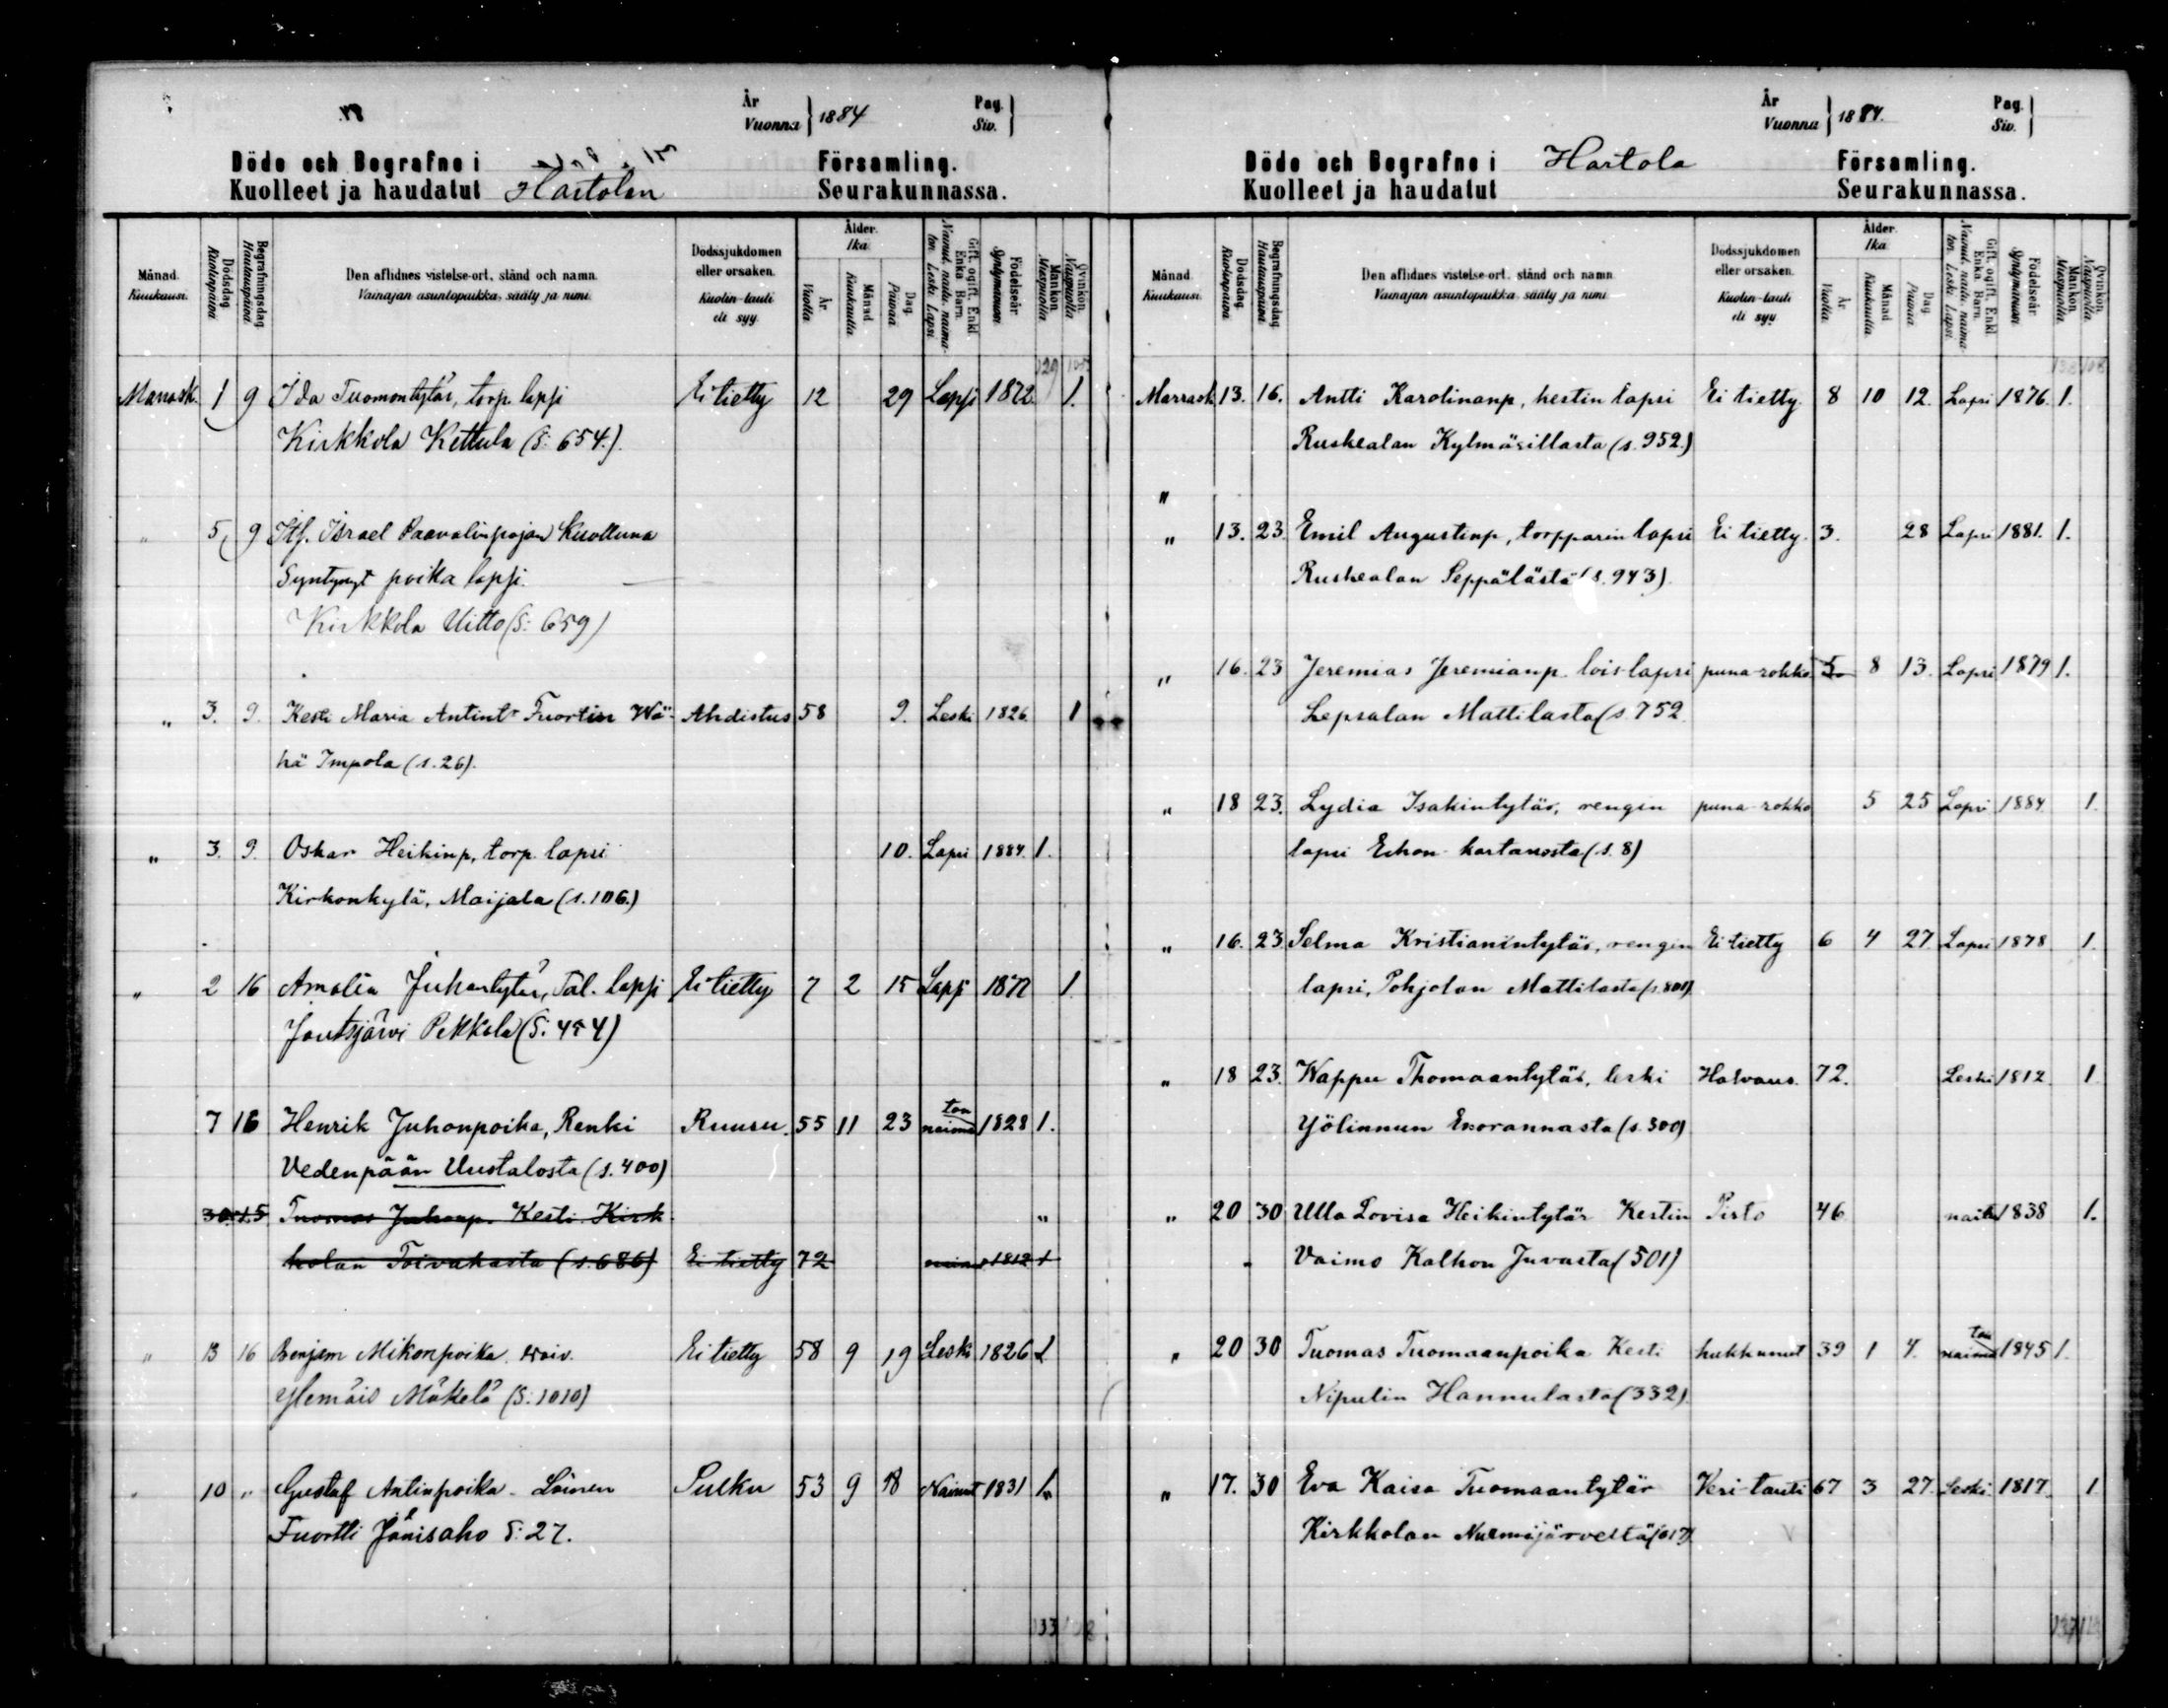 År
Vuonna } 1884
Pag.
Siv. }
Döde och Begrafne i Församling.
Kuolleet ja haudatut Hartolan Seurakunnassa.
Månad. Kuukausi.
Dödsdag. Kuolinpäivä
Begrafningsdag. Hautauspäivä
Den aflidnes vistelse-ort, stånd och namn.
Vainajan asuntopaikka, sääty ja nimi.
Dödssjukdomen eller orsaken.
Kuolin-tauti eli syy.
Ålder. Ikä.
År. Vuotta
Månad. Kuukautta
Dag. Päivää
Gift, ogift, Enkl. Enka Barn.
Nainut, naitu, naimaton. Leski. Lapsi
Födelseår. Syntymävuosi.
Mankön. Miespuolia
Qvinkön. Naispuolia
129 105
Marrask. 1 9 Ida Tuomontytär, torp. lapsi Ei tietty 12 29 Lapsi 1872 1.
Kirkkola Kettula (S: 654.)
" 5 9 Itf. Israel Paavalinpojan kuolluna
Syntynyt poika lapsi.
Kirkkola Uitto (S: 659)
" 3. 9. Kesti Maria Antint. Fuortin Wä- Ahdistus 58 9. Leski 1826 1
hä Impola (s. 26).
" 3. 9. Oskar Heikinp, torp. lapsi 10. Lapsi 1884. 1.
Kirkonkylä, Maijala (s. 106.)
" 2 16 Amalia Juhantytär, Tal. lapsi Ei tietty 7 2 15 Lapsi 1877 1
Joutsjärvi Pekkola (S: 454)
7 16 Henrik Juhonpoika, Renki Ruusu. 55 11 23 naimaton 1828 1.
Vedenpään Uustalosta (s. 400)
30. 15 Tuomas Juhanp. Kesti Kirk "
kolan Toivakasta (s. 686) Ei tietty 72 1812 1
" 13 16 Benjam Mikonpoika. waiv. Ei tietty 58 9 19 Leski 1826 1
Ylemäis Mäkelä (S: 1010)
" 10 " Gustaf Antinpoika. Loinen Sulku 53 9 18 Nainut 1831 1
Fuortti Jänisaho S: 27.
133 108
År
Vuonna } 1884.
Pag.
Siv. }
Döde och Begrafne i Hartola Församling.
Kuolleet ja haudatut Seurakunnassa.
Månad. Kuukausi.
Dödsdag. Kuolinpäivä
Begrafningsdag. Hautauspäivä
Den aflidnes vistelse-ort, stånd och namn.
Vainajan asuntopaikka, sääty ja nimi.
Dödssjukdomen eller orsaken.
Kuolin-tauti eli syy.
Ålder. Ikä.
År. Vuotta
Månad. Kuukautta
Dag. Päivää
Gift, ogift, Enkl. Enka Barn.
Nainut, naitu, naimaton. Leski. Lapsi
Födelseår. Syntymävuosi.
Mankön. Miespuolia.
Qvinkön. Naispuolia.
133 108
Marrask 13. 16. Antti Karolinanp, kestin lapsi Ei tietty 8 10 12. Lapsi 1876. 1.
Ruskealan Kylmäsillasta (s. 952.)
"
" 13. 23. Emil Augustinp, torpparin lapsi Ei tietty. 3. 28 Lapsi 1881. 1.
Ruskealan Seppälästä (s. 943).
" 16. 23 Jeremias Jeremianp. lois-lapsi puna-rokko 5 8 13. Lapsi 1879 1.
Lepsalan Mattilasta (s. 752
" 18 23. Lydia Isakintytär, rengin puna-rokko 5 25 Lapsi 1884. 1.
lapsi Echon kartanosta (s. 8)
" 16. 23 Selma Kristianintytär, rengin Ei tietty 6 4 27. Lapsi 1878 1.
lapsi, Pohjolan Mattilasta (s. 801)
" 18 23. Wappu Thomaantytär, leski Halvaus. 72. Leski 1812 1
Yölinnun Enorannasta (s. 300)
" 20 30 Ulla Lovisa Heikintytär Kestin Pisto 46 naitu 1838 1.
Vaimo Kalhon Juvasta (501)
" 20 30 Tuomas Tuomaanpoika Kesti hukkunut 39 1 4. naimaton 1845 1.
Nipulin Hannulasta (332).
" 17. 30 Eva Kaisa Tuomaantytär Keri-tauti 67 3 27. Leski. 1817. 1
Kirkkolan Nurmijärveltä
137